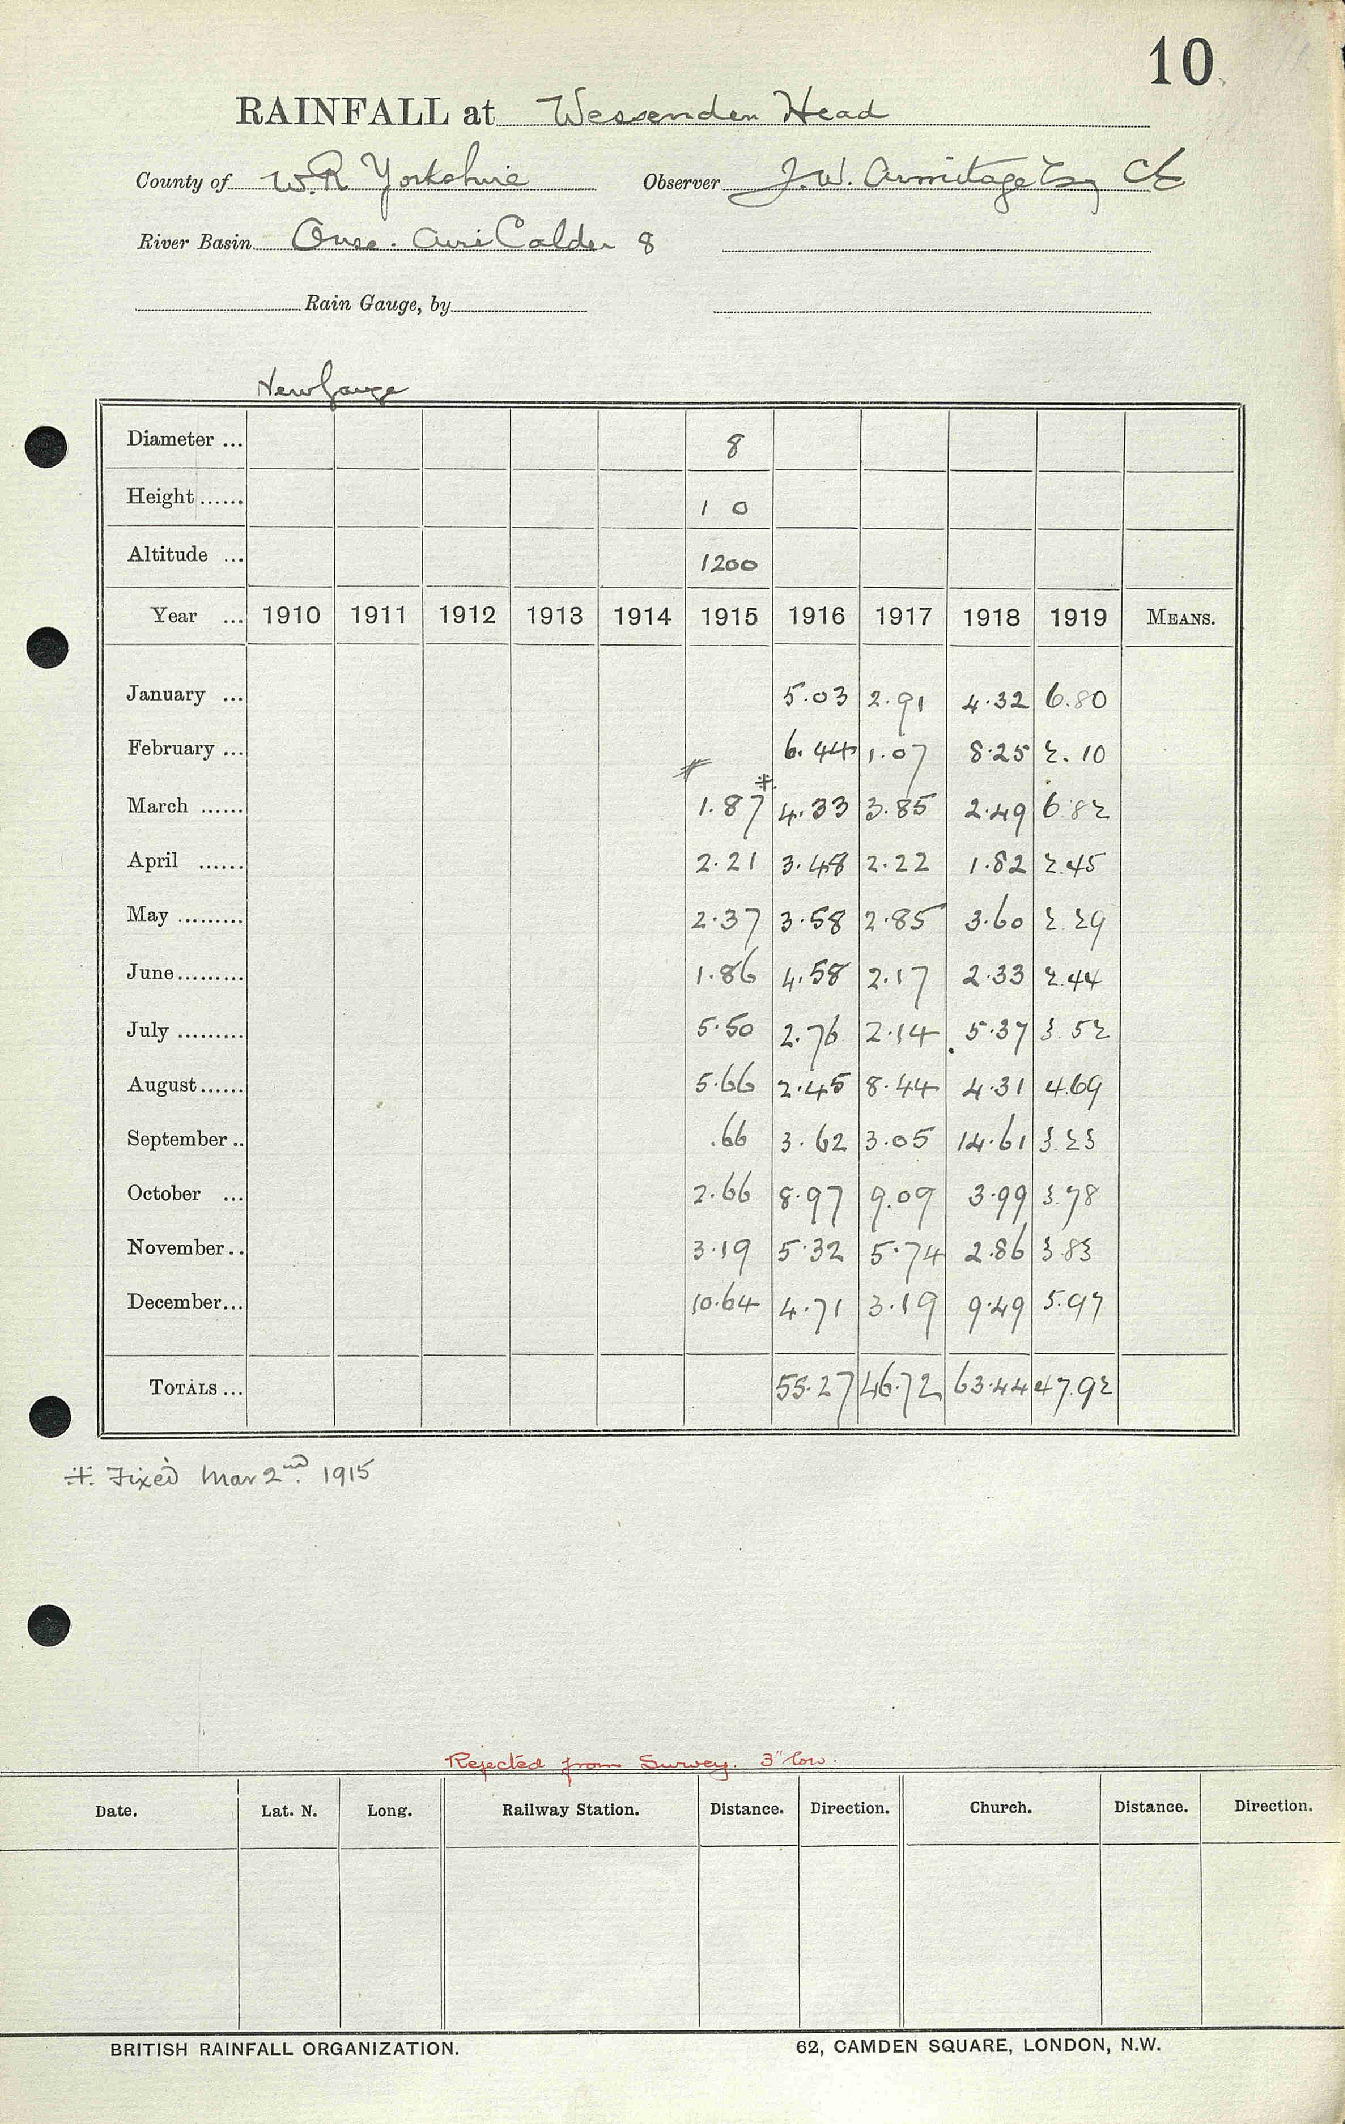 10
RAINFALL at Wessenden Head
County of W.R Yorkshire Observer J.W. Armitage Esq CE
River Basin Ouse. Aire Calder 8
Rain Gauge, by
New Gauge
Diameter ... 8
Height ...... 1 0
Altitude ... 1200
Year ... 1910 1911 1912 1913 1914 1915 1916 1917 1918 1919 MEANS.
January ... 5.03 2.91 4.32 6.80
February ... 6.44 1.07 8.25 2.10
March ...... 1.87 ‡ 4.33 3.85 2.49 6.82
April ...... 2.21 3.48 2.22 1.82 2.45
May ......... 2.37 3.58 2.85 3.60 2.29
June ......... 1.86 4.58 2.17 2.33 2.44
July ......... 5.50 2.76 2.14 5.37 3.52
August ...... 5.66 2.45 8.44 4.31 4.69
September .. .66 3.62 3.05 14.61 3.23
October ... 2.66 8.97 9.09 3.99 3.78
November .. 3.19 5.32 5.74 2.86 3.83
December ... 10.64 4.71 3.19 9.49 5.97
TOTALS ... 55.27 46.72 63.44 47.92
‡. Fixed Mar 2nd. 1915
Rejected from Survey. 3" low.
Date. Lat. N. Long. Railway Station. Distance. Direction. Church. Distance. Direction.
BRITISH RAINFALL ORGANIZATION. 62, CAMDEN SQUARE, LONDON, N.W.